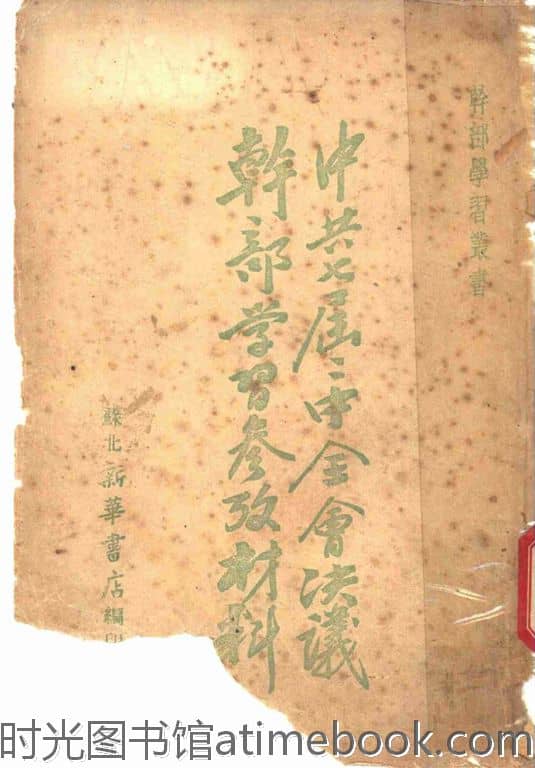 幹部學習叢書
中共七届二中全會决議
幹部学習參攷材料
蘇北新華書店編印
时光图书馆atimebook.com